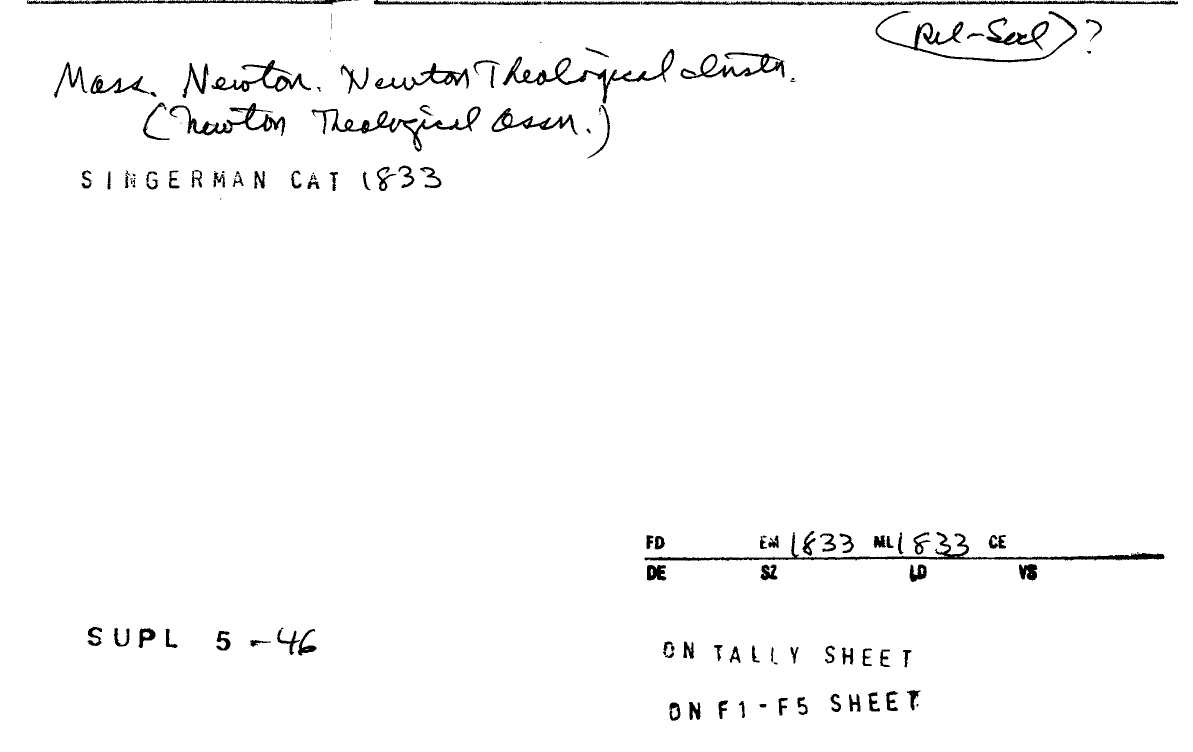 (Rel-Secl)?
Mass. Newton. Newton Theological Instn.
(Newton Theological Assn.)
SINGERMAN CAT 1833
FD EM 1833 ML 1833 CE
DE SZ LD VS
SUPL 5-46
ON TALLY SHEET
ON F1-F5 SHEET